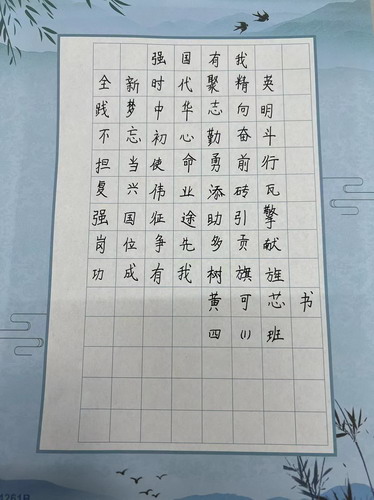 强国有我
全新时代聚精英
践梦中华志向明
不忘初心勤奋斗
担当使命勇前行
复兴伟业添砖瓦
强国征途助引擎
岗位争先多贡献
功成有我树旗旌
黄可芯书
四(1)班